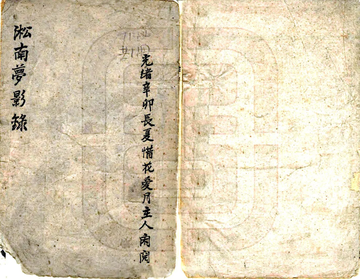 光緒辛卯長夏惜花愛月主人南閱
淞南夢影錄